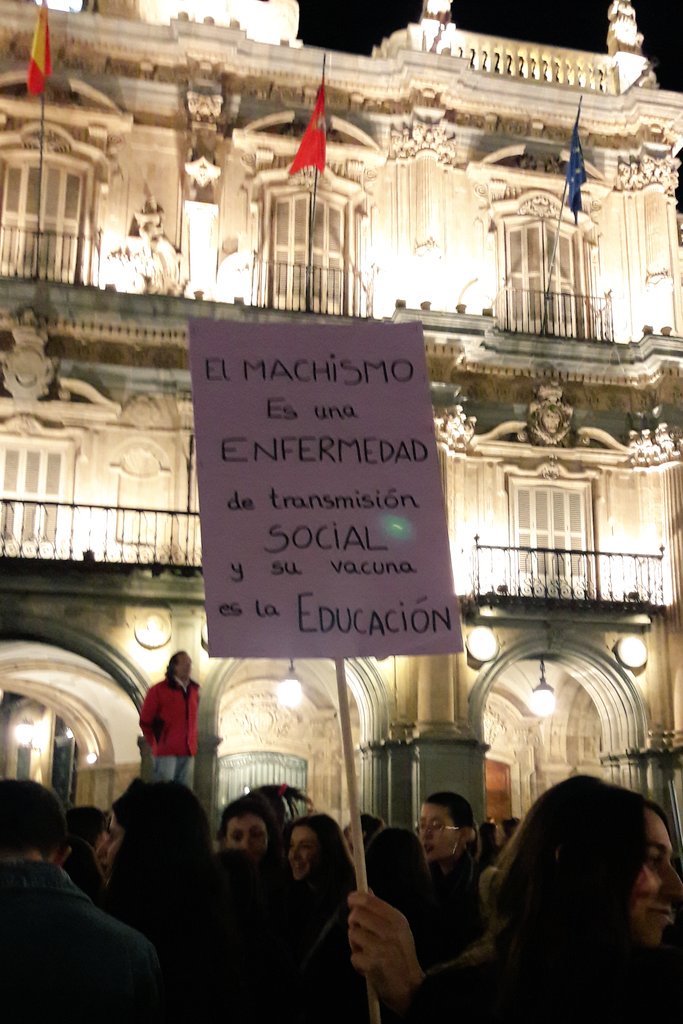 El MACHiSMO
Es una
ENFERMEDAD
de transmisión
SOCIAL
y su vacuna
es la EDUCACIÓN